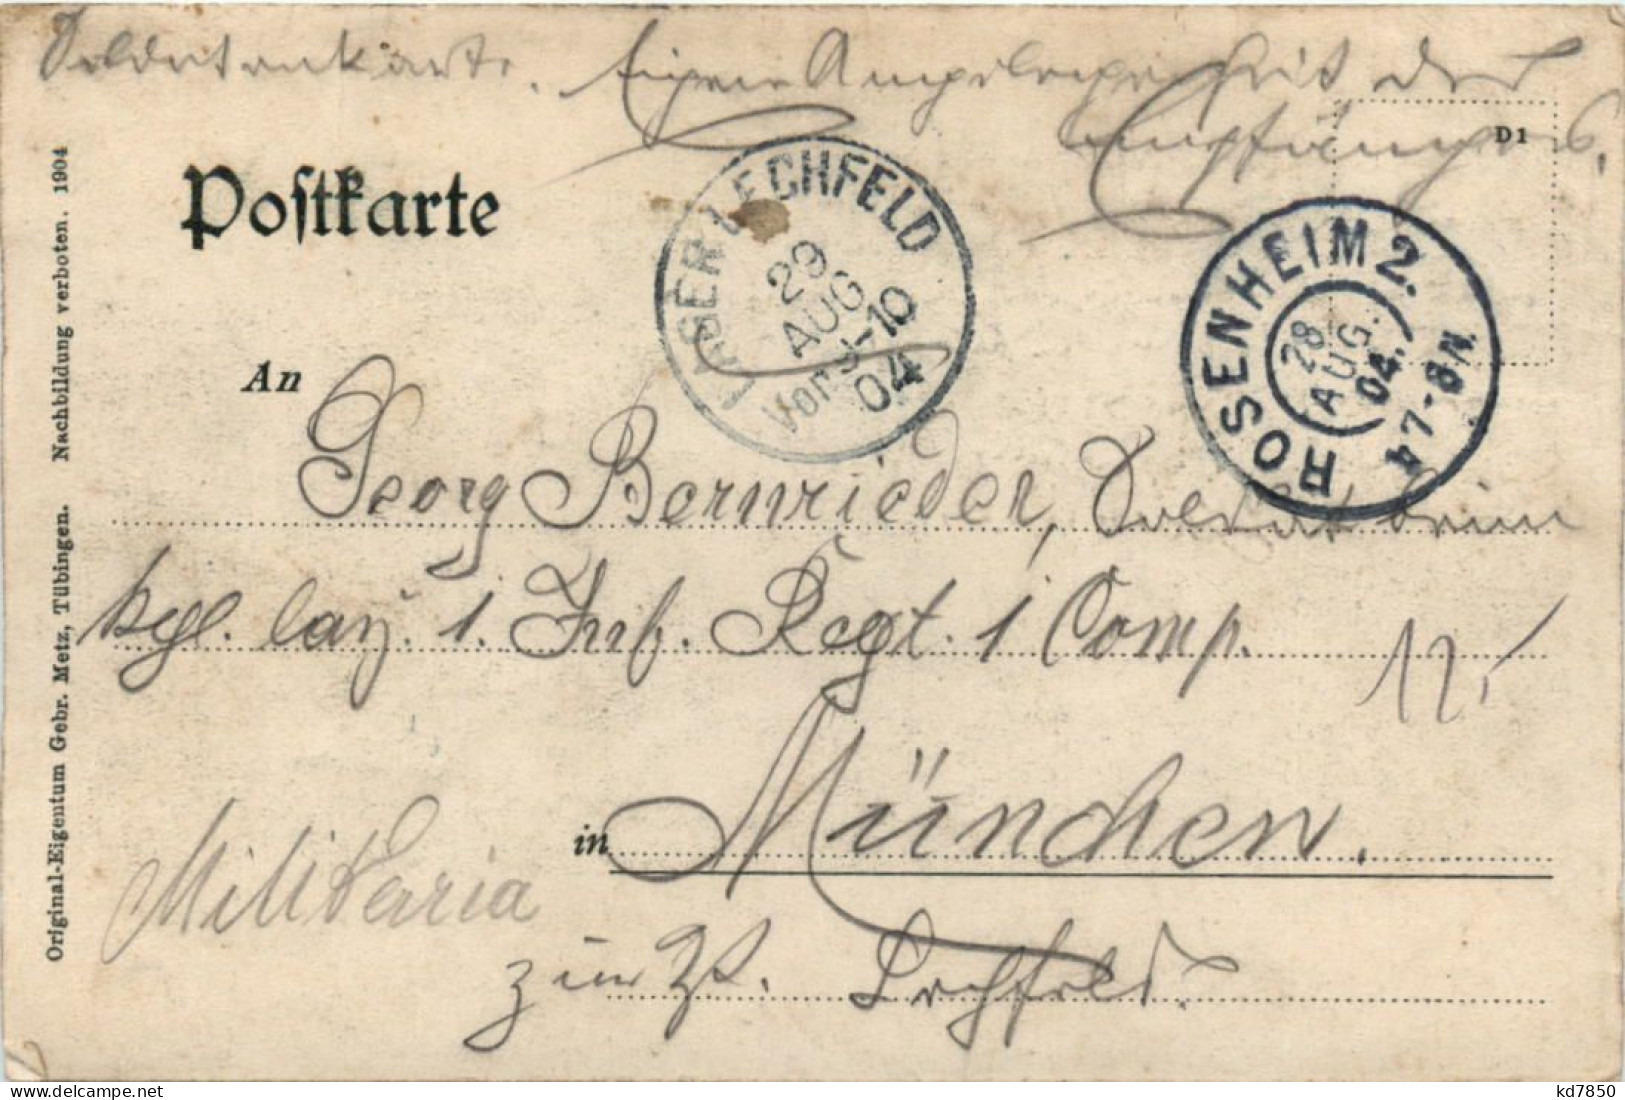 Soldatenkarte. Eigene Angelegenheit des
Empfängers.
D 1
Postkarte
LAGER LECHFELD
29
AUG
Vor 9-10
04
ROSENHEIM 2.
28
AUG.
04.
7-8 N.
An
Georg Bernrieder, Soldat beim
kgl. bay. 1. Inf. Regt. 1 Comp.
12,-
in München.
Militaria
zur Zt. Lechfeld.
Original-Eigentum Gebr. Metz, Tübingen. Nachbildung verboten. 1904
www.delcampe.net
kd7850